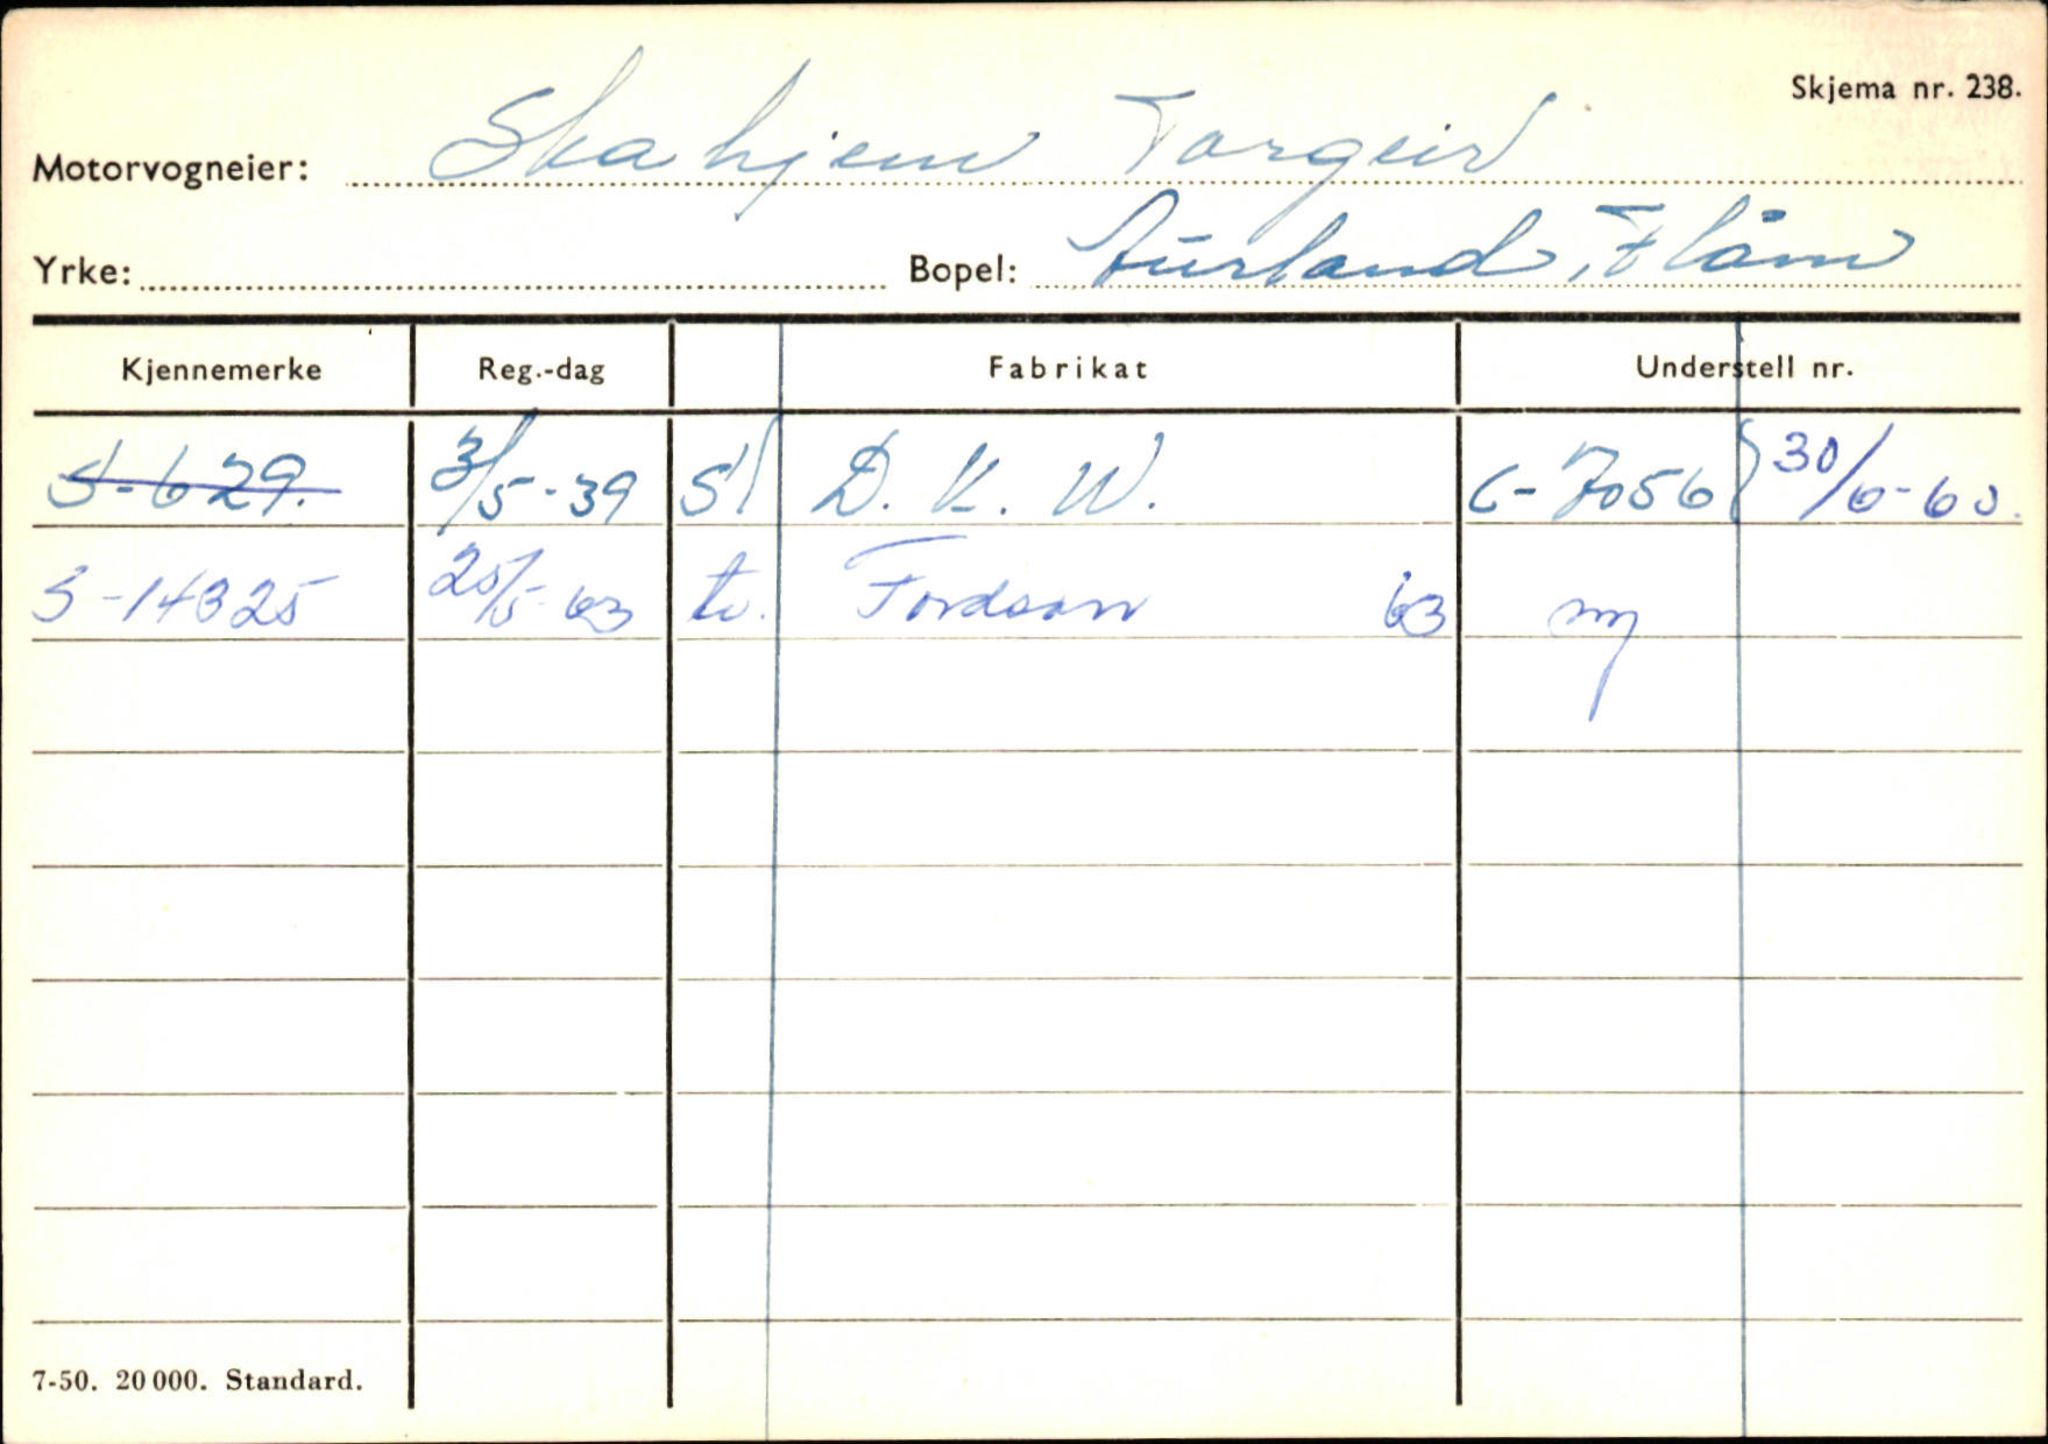 Skjema nr. 238.
Motorvogneier: Skahjem Torgeir
Yrke: Bopel: Aurland, Flåm
Kjennemerke Reg.-dag Fabrikat Understell nr.
S-629. 3/5-39 D. K. W. C-7056 30/6-60.
S-14325 25/5-63 tr. Fordson 63 ny
7-50. 20 000. Standard.